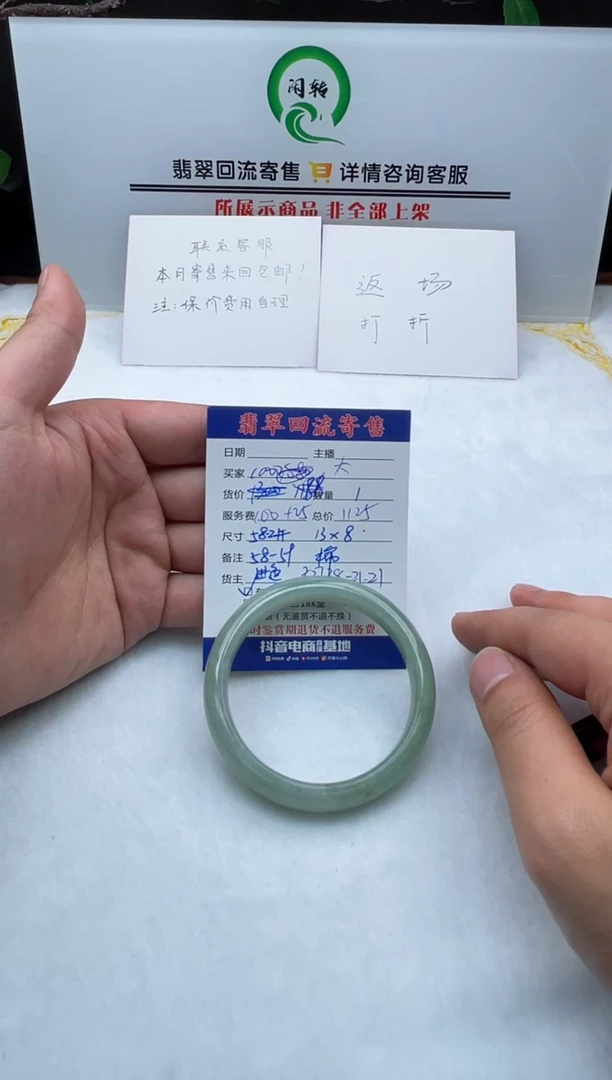 闲转
翡翠回流寄售 详情咨询客服
所展示商品,非全部上架
联系客服
本月寄售来回包邮!
注:保价费用自理
返场
打折
翡翠回流寄售
日期 主播
买家 大
货价 数量 1
服务费 100+25 总价 1125
尺寸 58.2圈 13×8
备注 58-59 棉
货主
18K金
(无鉴赏不退不换)
时鉴赏期退货不退服务费
抖音电商直播基地